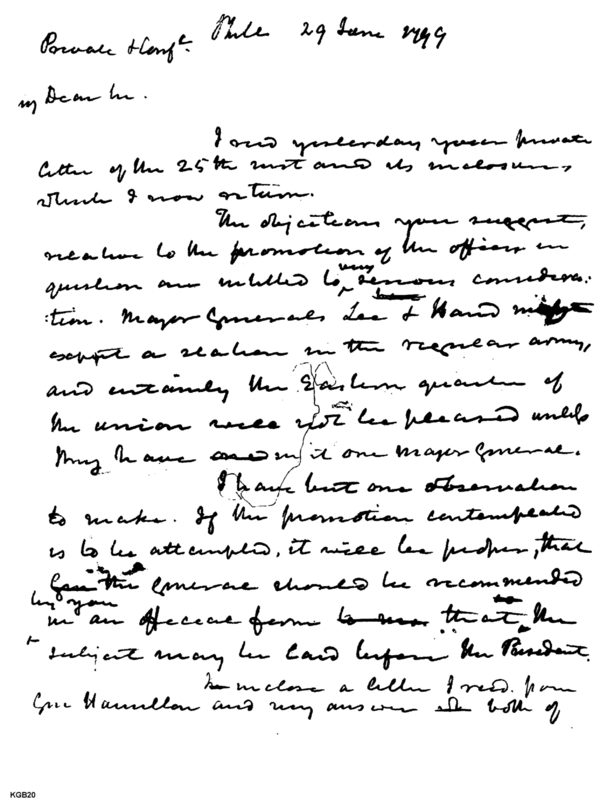 Private & Conf.l Phila 29 June 1799
my Dear Sir.
I recd yesterday your private
letter of the 25th inst and its inclosures,
which I now return.
The objections you suggest,
relative to the promotion of the officer in
question are intitled to very serious considera:
:tion. Major Generals Lee & Hand might
expect a station in the regular army,
and certainly the Eastern quarter of
the union will not be pleased unless
they have in it one Major General.
I have but one observation
to make. If the promotion contemplated
is to be attempted, it will be proper, that
the General should be recommended
by you
in an official form that the
subject may be laid before the President.
I inclose a letter I recd. from
Gen Hamilton and my answer both of
KGB20